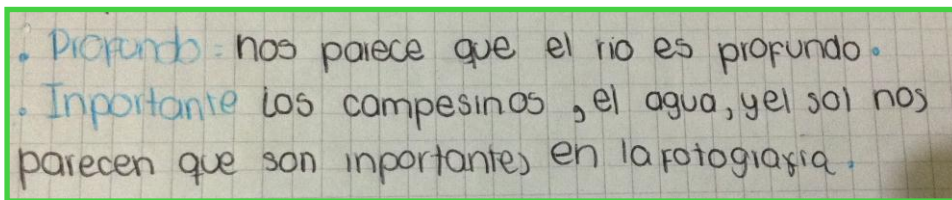 . Profundo: nos parece que el rio es profundo.
. Inportante Los campesinos, el agua, y el sol nos
parecen que son inportantes en la fotografia.